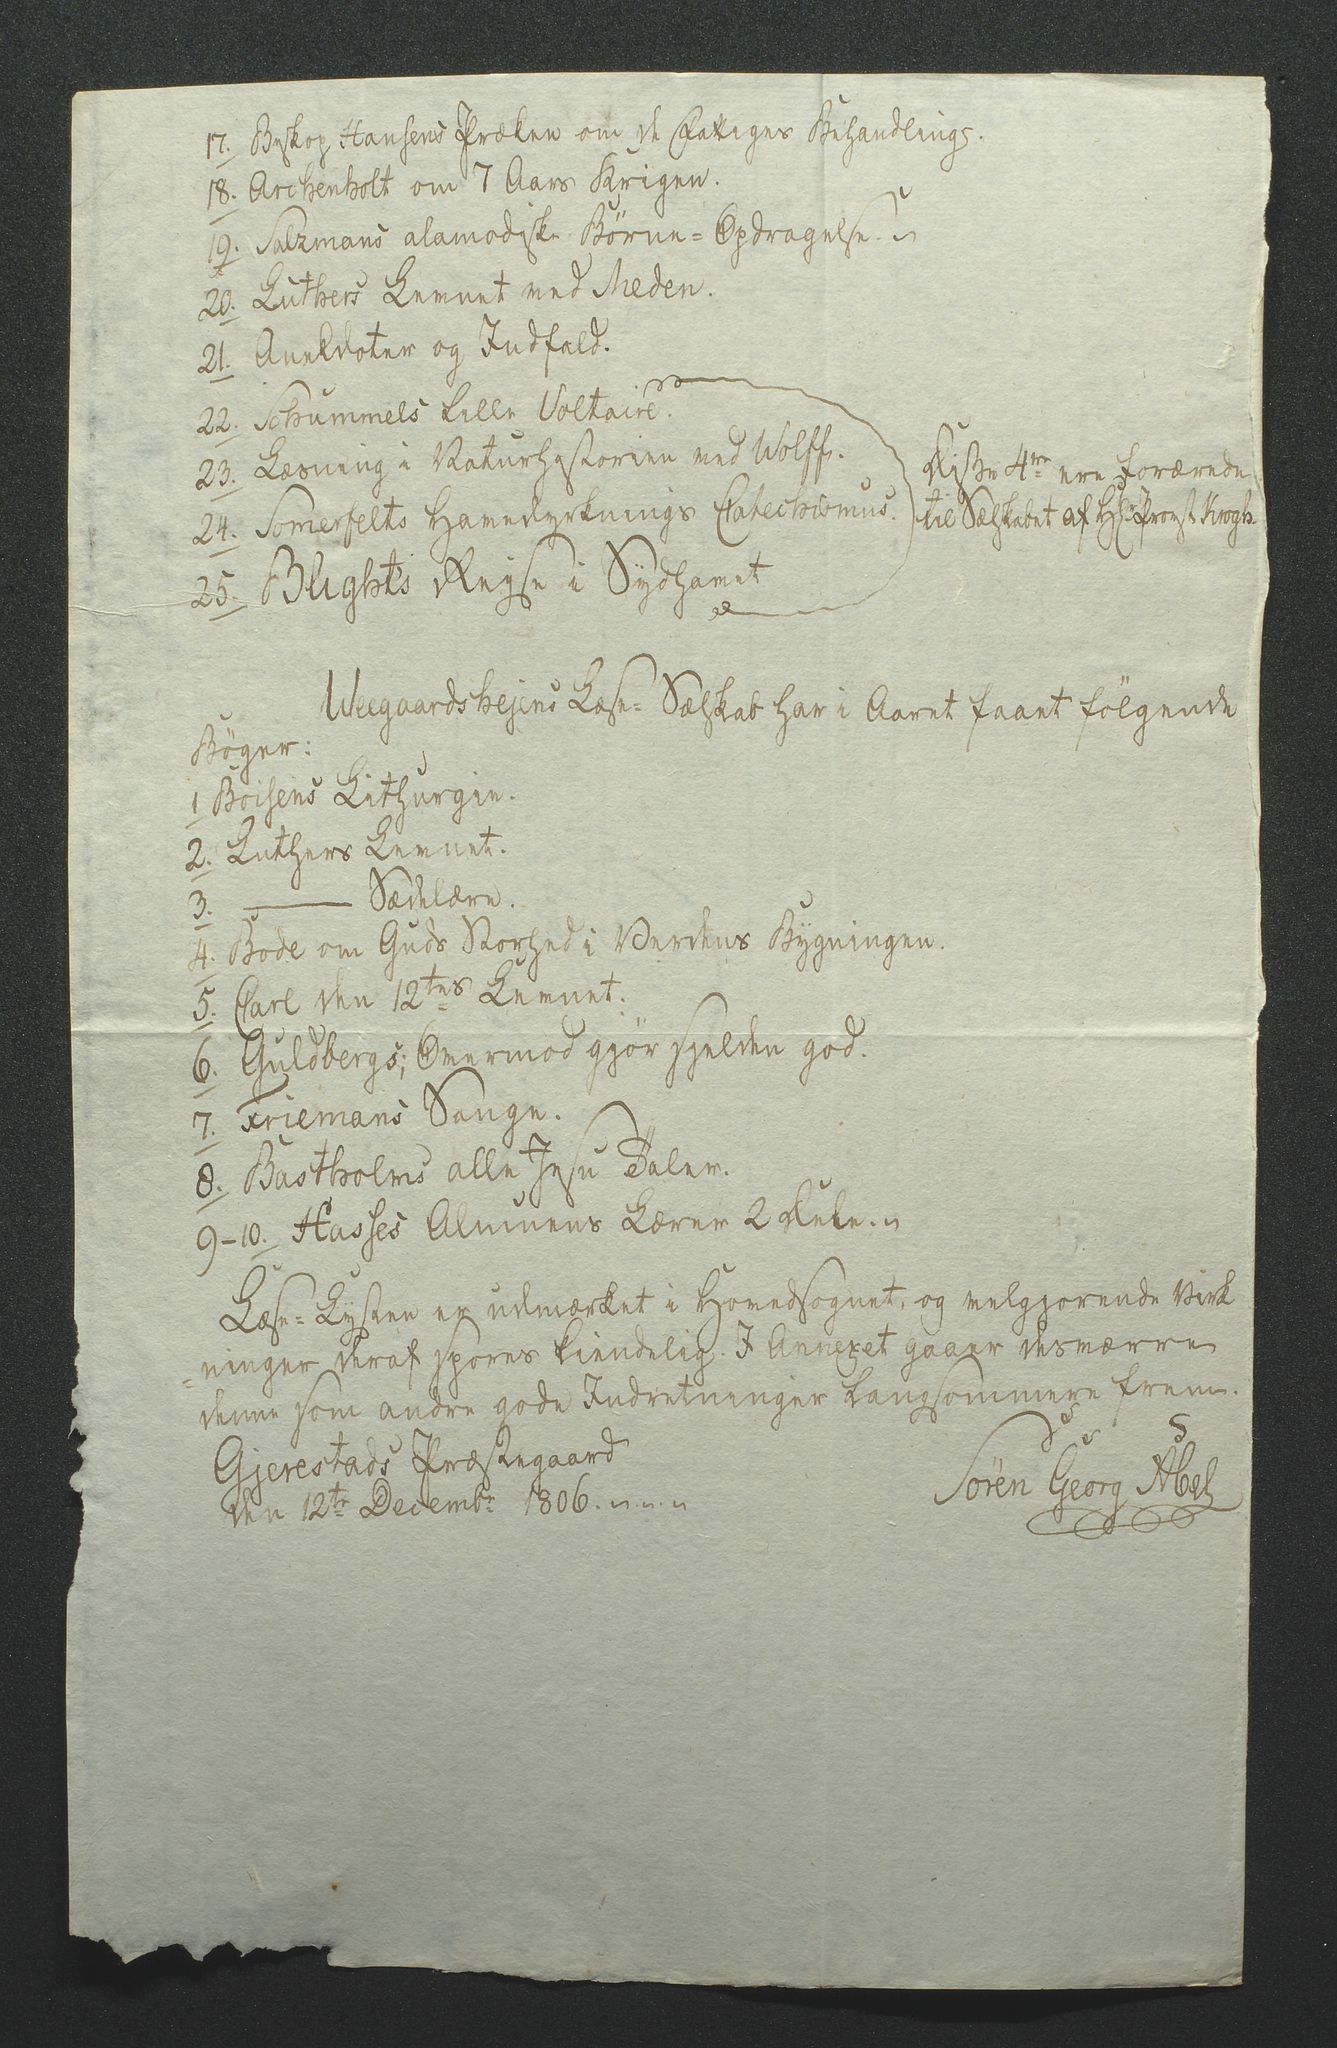 17. Biskop Hansens Præken om de Fattiges Behandling.
18. Archenholt om 7 Aars Krigen.
19. Salzmans alamodiske Børne=Opdragelse.
20. Luthers Levnet ved Meden.
21. Anekdoter og Indfald.
22. Schummels lille Voltaire.
23. Læsning i Naturhistorien ved Wolff.
24. Somerfelts Havedyrknings Catechismus.
25. Blights Reyse i Sydhavet
Disse 4re ere forærede
til Selskabet af Hr Provst Krogh
Weegaardshejens Læse=Selskab har i Aaret faaet følgende
Bøger:
1 Boisens Lithurgie.
2. Luthers Levnet.
3. ——— Sædelære.
4. Bode om Guds Storhed i Verdens Bygningen.
5. Carl den 12tes Levnet.
6. Guldbergs; Overmod gjør sjelden god.
7. Friemans Sange.
8. Bastholms alle Jesu Taler.
9-10. Hasses Almuens Lærer 2 Dele.
Læse=Lysten er udmærket i Hovedsognet, og velgjørende Virk
=ninger deraf spores kiendelig. I Annexet gaaer desværre
denne som andre gode Indretninger langsommere frem.
Gjerestads Præstegaard
den 12te Decembr 1806.
Søren Georg Abel